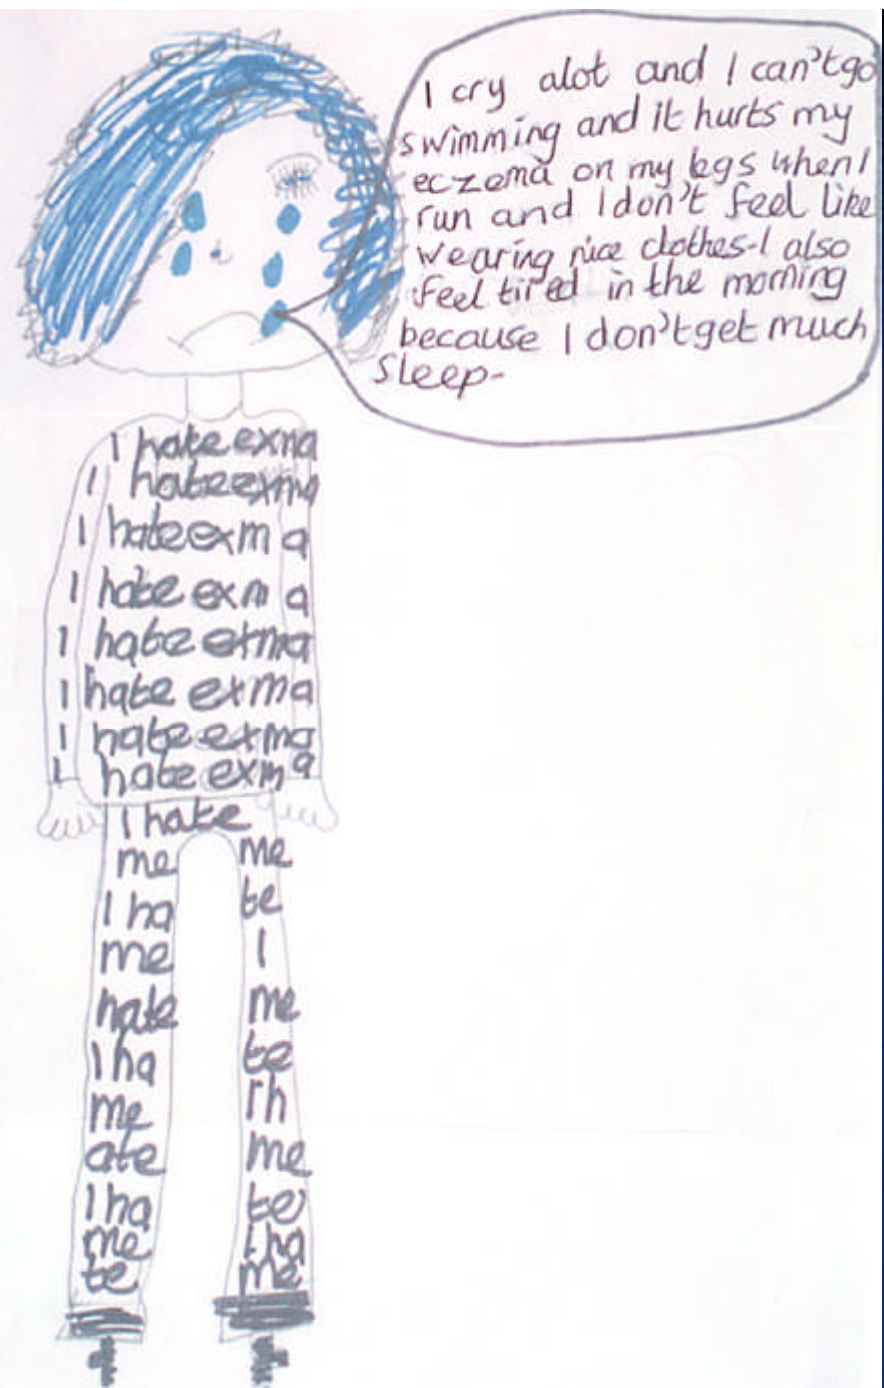 I cry alot and I can't go
swimming and it hurts my
eczema on my legs when I
run and I don't feel like
wearing nice clothes-I also
feel tired in the morning
because I don't get much
sleep-
I hate exma
I hate exma
I hate exma
I hate exma
I hate exma
I hate exma
I hate exma
I hate exma
I hate
me me
I ha te
me I
hate me
I ha te
me I h
ate me
I ha te
me I ha
te me